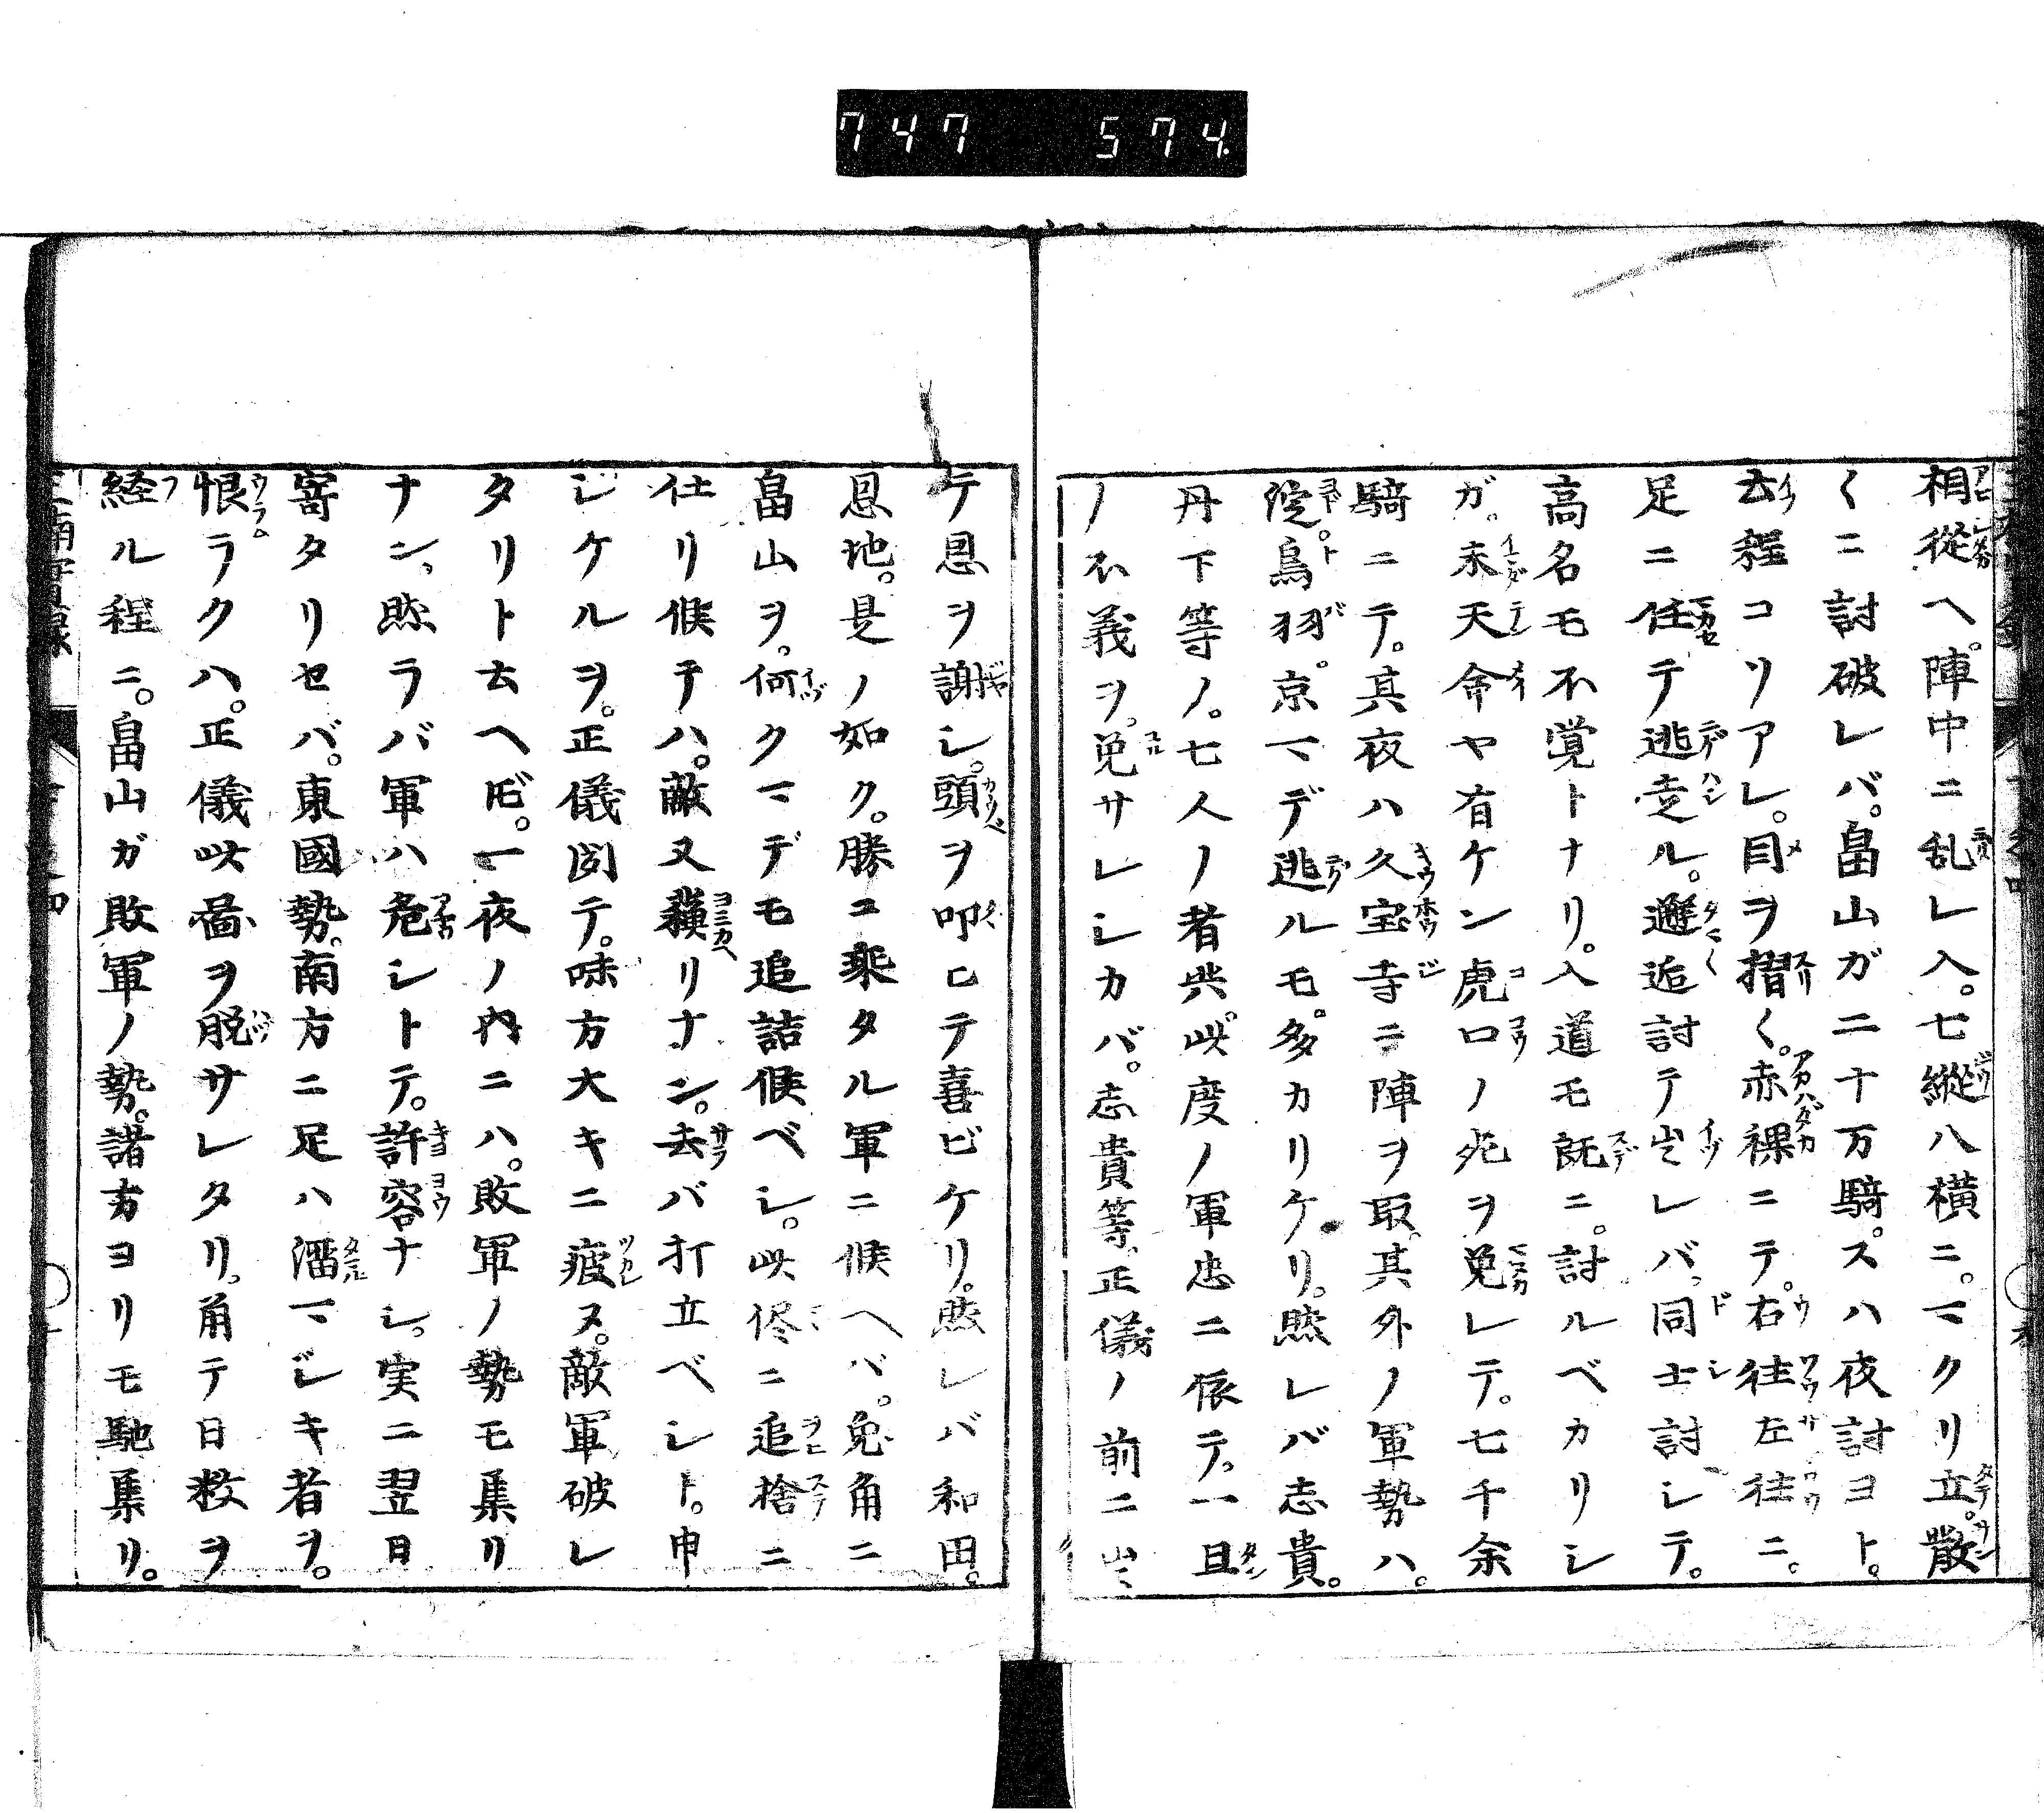 747 574
相從ヘ。陣中ニ乱レ入。七縱八横ニ。マクリ立。散
〱ニ討破レバ。畠山ガ二十万騎。スハ夜討ヨト。
去程コリアレ。目ヲ摺〱。赤裸ニテ。右往左往ニ。
足ニ任テ逃走ル。邂逅討テ出レバ。同士討シテ。
高名モ不覚トナリ。入道モ既ニ。討ルベカリシ
ガ。未天命ヤ有ケン虎口ノ死ヲ免レテ。七千余
騎ニテ。其夜ハ久宝寺ニ陣ヲ取。其外ノ軍勢ハ。
淀。鳥羽。京マデ逃ルモ。多カリケリ。然レバ志貴。
丹下等ノ。七人ノ者共。此度ノ軍忠ニ依テ。一旦
ノ不義ヲ。免サレシカバ。志貴等。正儀ノ前ニ出
テ恩ヲ謝シ。頭ヲ叩ヒテ喜ビケリ。然レバ和田。
恩地。是ノ如ク。勝ニ乘タル軍ニ候ヘバ。兎角ニ
畠山ヲ。何クマデモ追詰候ベシ。此侭ニ追捨ニ
仕リ候テハ。敵又蘇リナン。去バ打立ベシト。申
シケルヲ。正儀聞テ。味方大キニ疲ヌ。敵軍破レ
タリト云ヘ𪜈。一夜ノ内ニハ。敗軍ノ勢モ集リ
ナン。然ラバ軍ハ危シトテ。許容ナシ。実ニ翌日
寄タリセバ。東國勢。南方ニ足ハ溜マジキ者ヲ。
恨ラクハ。正儀此啚ヲ脱サレタリ。角テ日数ヲ
経ル程ニ。畠山ガ敗軍ノ勢。諸方ヨリモ馳集リ。